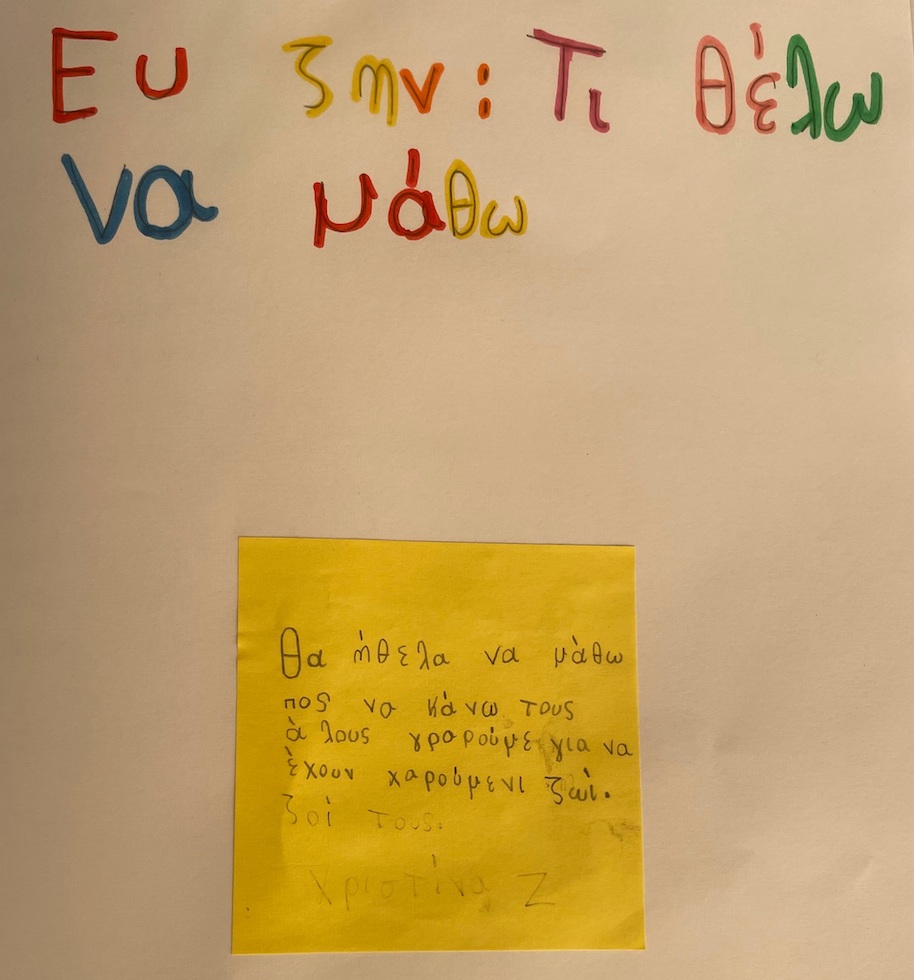 Ευ ζην: Τι θέλω
να μάθω
Θα ήθελα να μάθω
πος να κάνω τους
ά λους γραρούμε για να
έχουν χαρούμενι ζωί.
ζοί τους.
Χριστίνα Ζ